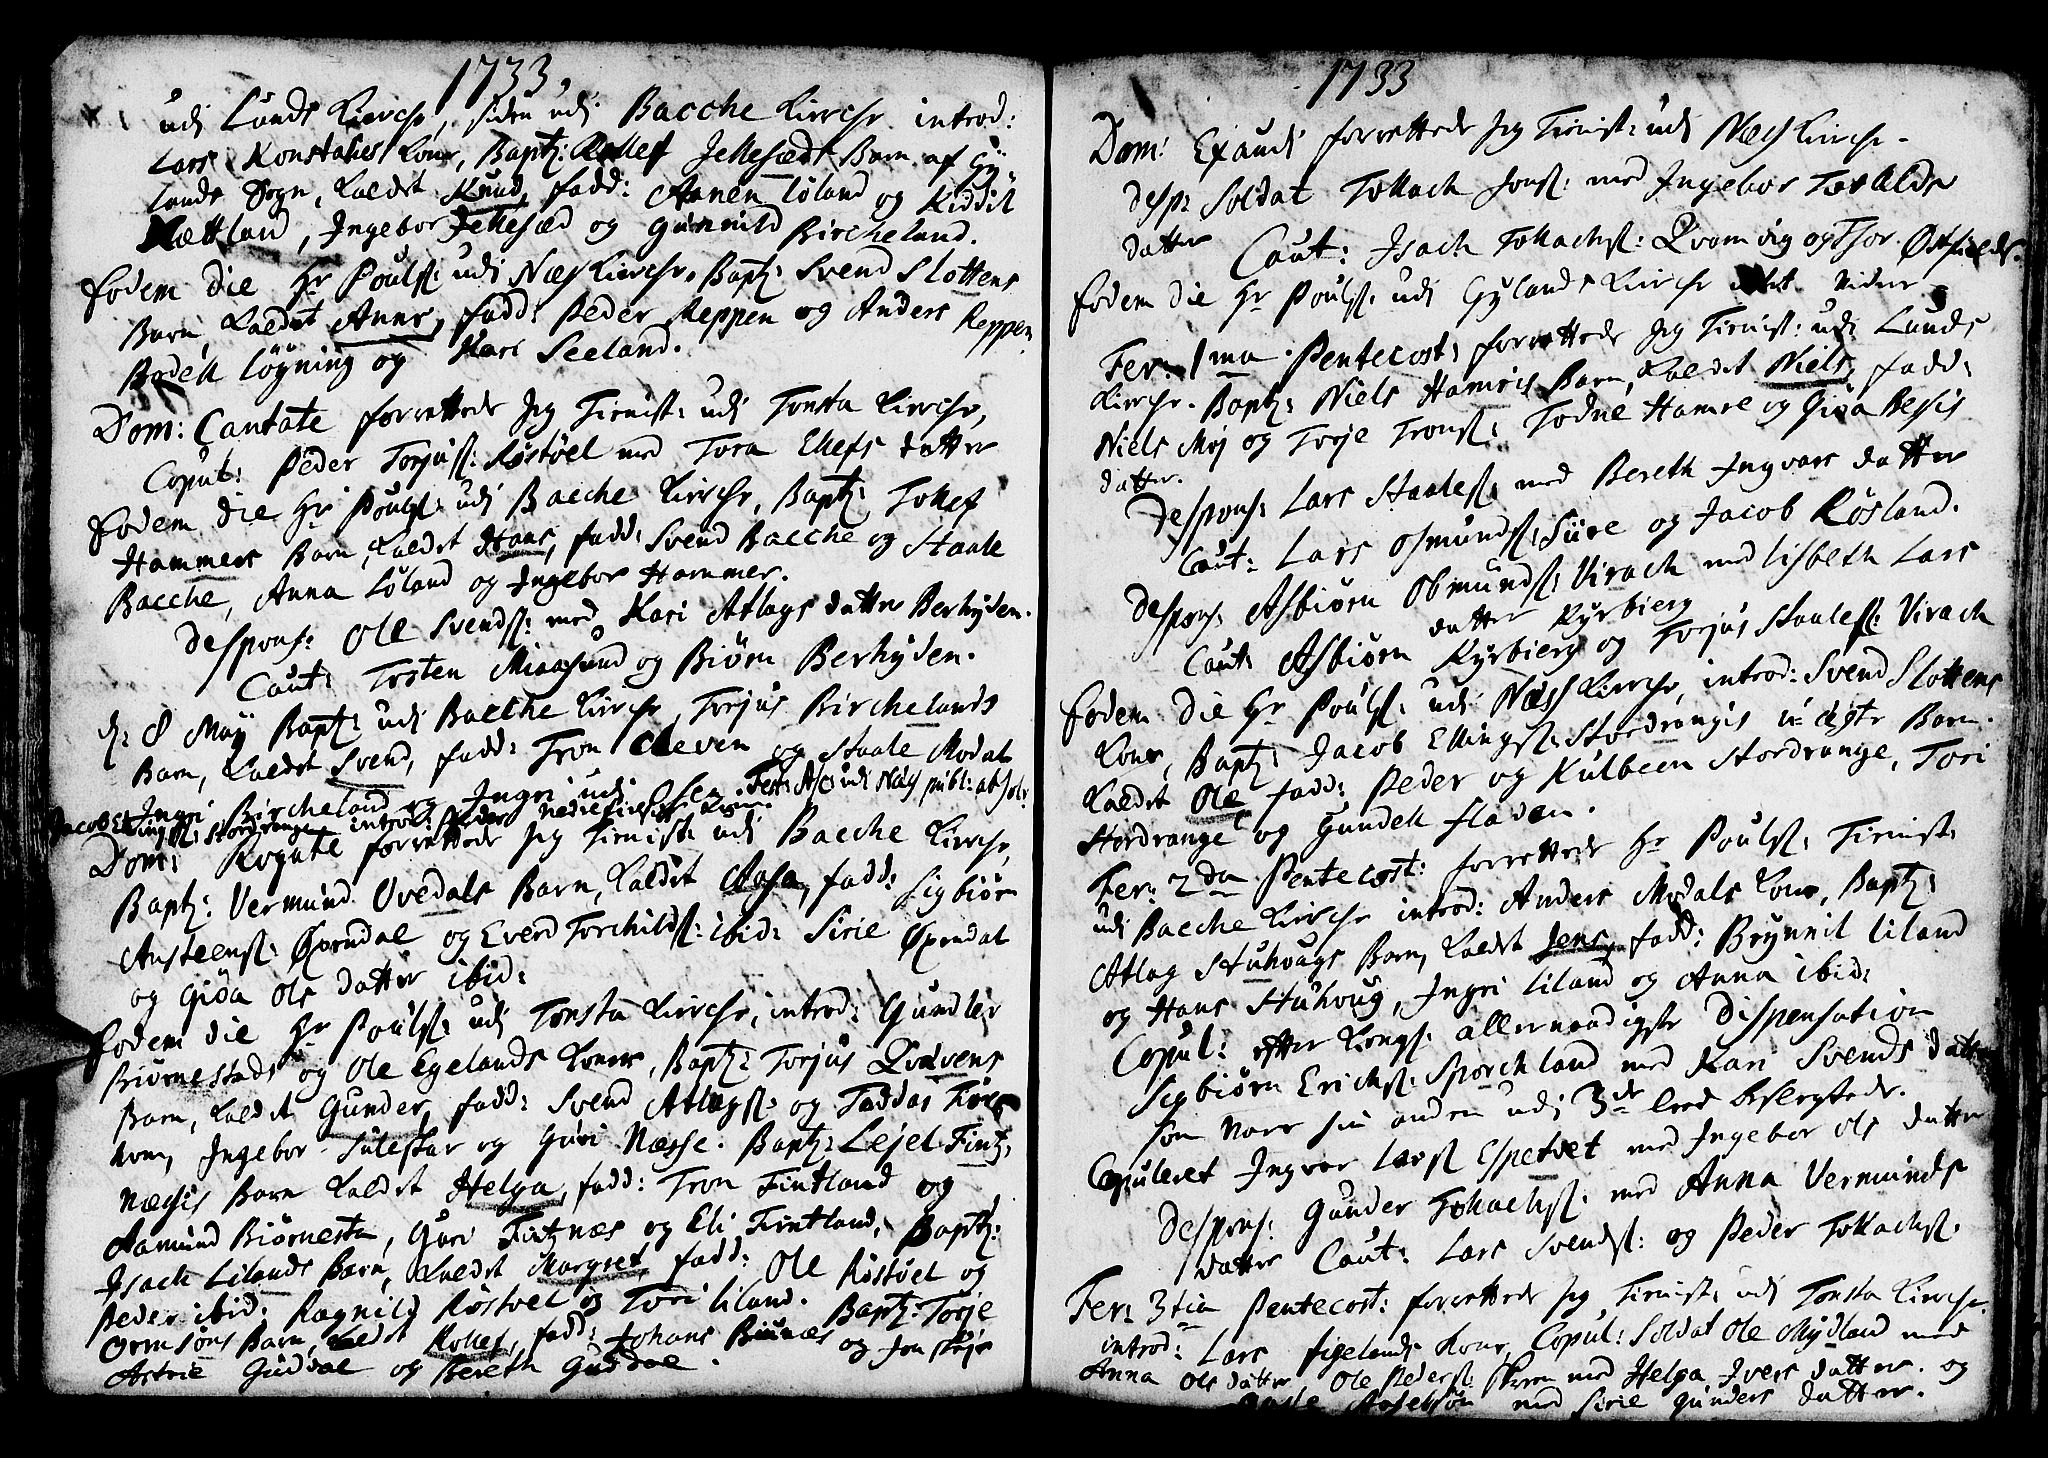 1733.
udj Lunds Kirche, siden udj Bacche Kirche introd:
Lars Konstalies Kone, Bapt: Rollef Jettesæds Barn af Gy-
lands Sogn, kaldet Knud, fadd: Aanen Løland og Kiddil
Nættland, Ingebor Jettesæd og Gunnild Bircheland.
Eodem die Hr Pouls: udj Næs Kirche. Bapt: Svend Slottens
Barn, kaldet Anne, fadd: Peder Reppen og Anders Reppen,
Bodell Løyning og Kari Seeland.
Dom: Cantate forrettede jeg Tienist: udj Tonsta Kirche,
Copul: Peder Torjus: Røstøel med Tora Ellefs datter
Eodem die Hr Pouls: udj Bacche Kirche, Bapt: Tollef
Hammers Barn, kaldet Hans, fadd: Svend Bacche og Staale
Bacche, Anna Løland og Ingebor Hammer.
Despons: Ole Svends: med Kari Atlags datter Berhyden.
Caut: Tosten Miaasund og Biørn Berhyden.
d: 8 May Bapt: udj Bacche Kirche, Torjus Birchelands
Barn, kaldet Svend, fadd: Tron Cleven og Staale Modal
Ingri Bircheland og Ingri udj Osen. Fest: Asc: udj Næs publ: absolv:
Jacob Ellings: Stordrange introd: Peder Kone.
Dom: Rogate forrettede jeg Tienist: udj Bacche Kirche,
Bapt: Vermund Ovedals Barn, kaldet Aasa, fadd: Sigbiør
Austeens: Øxendal og Everd Torchilds: ibid: Sirie Øxendal
og Gida Ols datter ibid:
Eodem die Hr Pouls: udj Tonsta Kirche, introd: Gundler
Biørnestads og Ole Egelands Koner, Bapt: Torjus Qvævens
Barn, kaldet Gunder, fadd: Svend Atlags: og Taddas
hom, Ingebor Sulestar og Guri Næsse. Bapt: Lejel Fint:
næsis Barn kaldet Helga, fadd: Tron Fintland og
Aamund Biørnesta, Guri Fintnæs og Eli Fintland, Bapt:
Isach Lilands Barn, kaldet Margret, fadd: Ole Røstøel og
Peder ibid: Ragnild Røstøel og Tori Liland. Bapt: Torje
Ormsøns Barn, kaldet Rollef, fadd: Johans Biunæs og Jon
Astrie Guddal og Bereth Guddal.
1733
Dom: Exaudi forrettede jeg Tienist: udj Næs Kirche.
Desp: Soldat Tollach Jons: med Ingebor Toralds
datter Caut: Isach Tollachs: Qvamvig og Tor Østfields.
Eodem die Hr Pouls: udj Gylands Kirche intet videre
Fer: 1ma Pentecost: forrettede jeg Tienist: udj Lunds
Kirche. Bapt: Niels Hamris Barn, kaldet Niels, fadd:
Niels Moj og Torje Trons: Todne Hamre og Gida Besis
datter.
Despons: Lars Staales: med Bereth Ingvars datter
Caut: Lars Osmunds: Siire og Jacob Røsland.
Despons: Asbiørn Obmunds: Virach med Lisbeth Lars
datter Kyrbierg
Caut: Asbiørn Kyrbierg og Torjus Staales: Virach
Eodem die Hr Pouls: udj Næss Kirche, introd: Svend Slottens
Kone, Bapt: Jacob Ellings: Stordrangis u-ægte Barn.
kaldet Ole fadd: Peder og Kulbeen Stordrange, Tori
Stordrange og Gundell Fladen.
Fer: 2da Pentecost: forrettede Hr Pouls: Tienist:
udj Bacche Kirche introd: Anders Modals Kone, Bapt:
Atlag Stuhougs Barn, kaldet Jens, fadd: Brynnil Liland
og Hans Stuhoug, Ingri Liland og Anna ibid:
Copul: efter Kongs: allernaadigste Dispensation
Sigbiørn Erichs: Sporchland med Kari Svends datter
som vare hin anden udj 3de leed beslegtede.
Copuleret Ingvor Lars: Espetvet med Ingebor Ols datter
Despons: Gunder Tollachs: med Anna Vermunds
datter Caut: Lars Svends: og Peder Tollachs:
Fer: 3tia Pentecost: forrettede jeg Tienist: udj Tonsta Kirche.
introd: Lars Figelands Kone, Copul: Soldat Ole Mydland med
Anna Ols datter Ole Peders: Skreen med Helga Ivers datter. og
med Sirie Gunders datter.